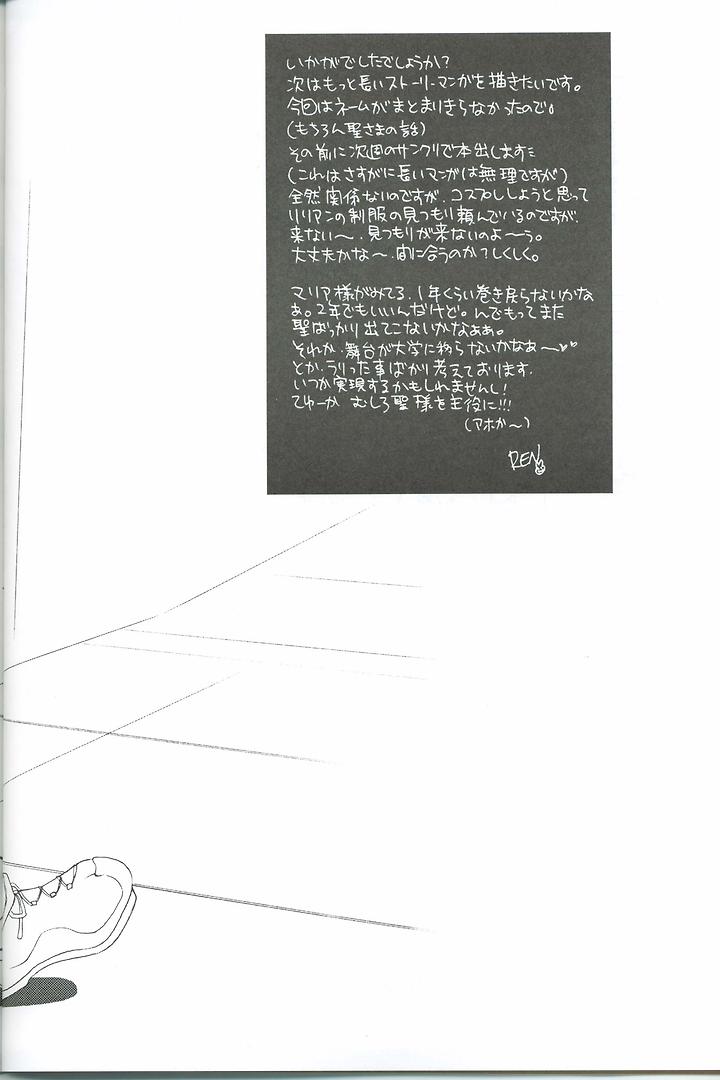 いかがでしたでしょうか?
次はもっと長いストーリーマンガを描きたいです。
今回はネームがまとまりきらなかったので。
(もちろん聖さまの話)
その前に次週のサンクリで本出します
(これはさすがに長いマンガは無理ですが)
全然関係ないのですが、コスプレしようと思って
リリアンの制服の見つもり頼んでいるのですが、
来ない〜、見つもりが来ないのよ〜う。
大丈夫かな〜、間に合うのか?しくしく。
マリア様がみてる、1年くらい巻き戻らないかな
ぁ。2年でもいいんだけど。んでもってまた
聖ばっかり出てこないかなぁぁ。
それか、舞台が大学に移らないかなあ〜♥♥
とか、うりった事ばかり考えております。
いつか実現するかもしれませんし!
てゆーか むしろ聖様を主役に!!!
(アホか〜)
REN